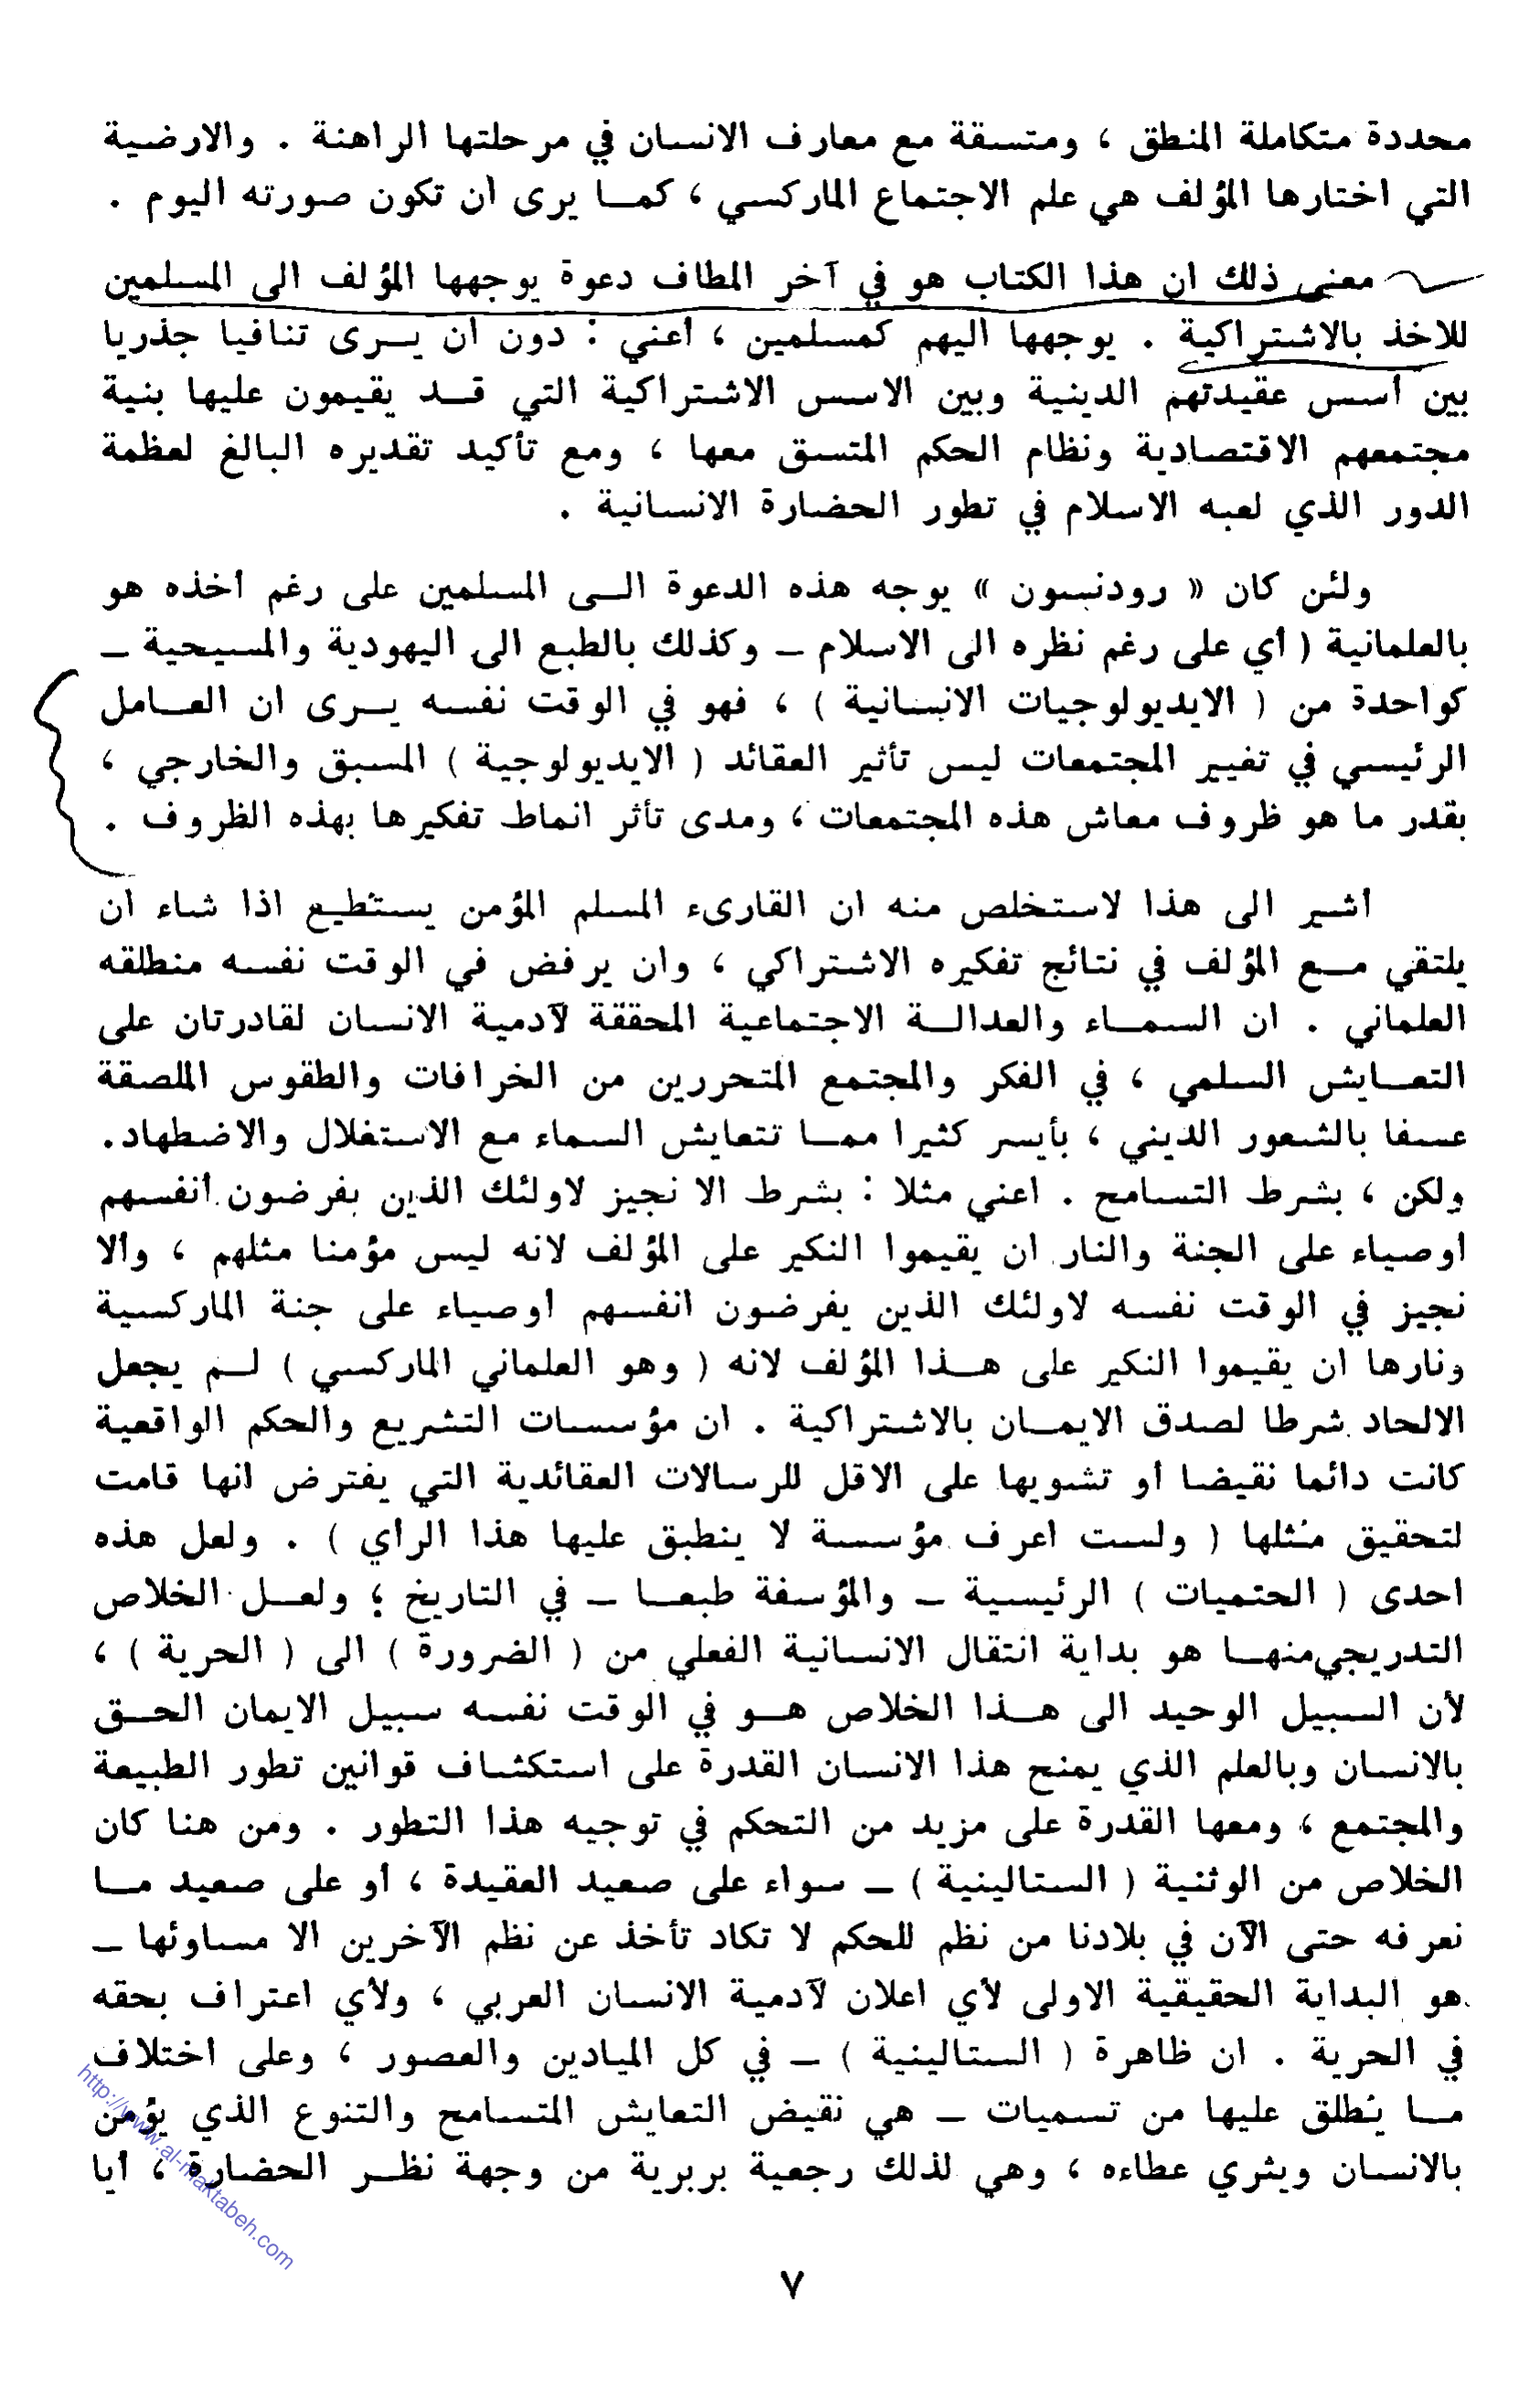 محددة متكاملة المنطق ، ومتسقة مع معارف الانسان في مرحلتها الراهنة . والارضية
التي اختارها المؤلف هي علم الاجتماع الماركسي ، كمـا يرى أن تكون صورته اليوم .
معنى ذلك ان هذا الكتاب هو في آخر المطاف دعوة يوجهها المؤلف الى المسلمين
للاخذ بالاشتراكية . يوجهها اليهم كمسلمين ، أعني : دون أن يـرى تنافيا جذريا
بين أسس عقيدتهم الدينية وبين الاسس الاشتراكية التي قـد يقيمون عليها بنية
مجتمعهم الاقتصادية ونظام الحكم المتسق معها ، ومع تأكيد تقديره البالغ لعظمة
الدور الذي لعبه الاسلام في تطور الحضارة الانسانية .
ولئن كان « رودنسون » يوجه هذه الدعوة الـى المسلمين على رغم أخذه هو
بالعلمانية ( أي على رغم نظره الى الاسلام – وكذلك بالطبع الى اليهودية والمسيحية –
كواحدة من ( الايديولوجيات الانسانية ) ، فهو في الوقت نفسه يـرى ان العـامل
الرئيسي في تغيير المجتمعات ليس تأثير العقائد ( الايديولوجية ) المسبق والخارجي ،
بقدر ما هو ظروف معاش هذه المجتمعات ، ومدى تأثر انماط تفكيرها بهذه الظروف .
أشير الى هذا لاستخلص منه ان القارىء المسلم المؤمن يستطيع اذا شاء أن
يلتقي مـع المؤلف في نتائج تفكيره الاشتراكي ، وان يرفض في الوقت نفسه منطلقه
العلماني . ان السمـاء والعدالـة الاجتماعية المحققة لآدمية الانسان لقادرتان على
التعـايش السلمي ، في الفكر والمجتمع المتحررين من الخرافات والطقوس الملصقة
عسفا بالشعور الديني ، بأيسر كثيرا ممـا تتعايش السماء مع الاستغلال والاضطهاد.
ولكن ، بشرط التسامح . اعني مثلا : بشرط الا نجيز لاولئك الذين يفرضون أنفسهم
أوصياء على الجنة والنار ان يقيموا النكير على المؤلف لانه ليس مؤمنا مثلهم ، وألا
نجيز في الوقت نفسه لاولئك الذين يفرضون انفسهم أوصياء على جنة الماركسية
ونارها ان يقيموا النكير على هـذا المؤلف لانه ( وهو العلماني الماركسي ) لـم يجعل
الالحاد شرطا لصدق الايمـان بالاشتراكية . ان مؤسسات التشريع والحكم الواقعية
كانت دائما نقيضا أو تشويها على الاقل للرسالات العقائدية التي يفترض انها قامت
لتحقيق مثلها ( ولست اعرف مؤسسة لا ينطبق عليها هذا الرأي ) . ولعل هذه
احدى ( الحتميات ) الرئيسية – والمؤسفة طبعـا – في التاريخ ؛ ولعـل الخلاص
التدريجي منهـا هو بداية انتقال الانسانية الفعلي من ( الضرورة ) الى ( الحرية ) ،
لأن السبيل الوحيد الى هـذا الخلاص هـو في الوقت نفسه سبيل الايمان الحـق
بالانسان وبالعلم الذي يمنح هذا الانسان القدرة على استكشاف قوانين تطور الطبيعة
والمجتمع ، ومعها القدرة على مزيد من التحكم في توجيه هذا التطور . ومن هنا كان
الخلاص من الوثنية ( الستالينية ) – سواء على صعيد العقيدة ، أو على صعيد مـا
نعرفه حتى الآن في بلادنا من نظم للحكم لا تكاد تأخذ عن نظم الآخرين الا مساوئها –
هو البداية الحقيقية الاولى لأي اعلان لآدمية الانسان العربي ، ولأي اعتراف بحقه
في الحرية . ان ظاهرة ( الستالينية ) – في كل الميادين والعصور ، وعلى اختلاف
مـا يُطلق عليها من تسميات – هي نقيض التعايش المتسامح والتنوع الذي يؤمن
بالانسان ويثري عطاءه ، وهي لذلك رجعية بربرية من وجهة نظـر الحضارة ، أيا
http://www.al-maktabeh.com
٧